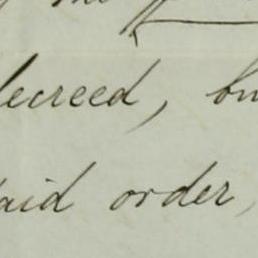 decreed, bu
said order,